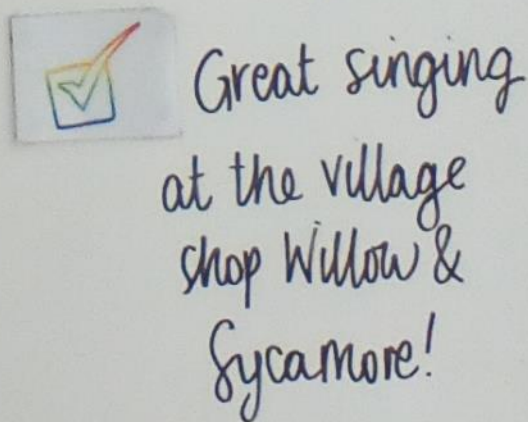 Great singing
at the village
shop Willow &
Sycamore!